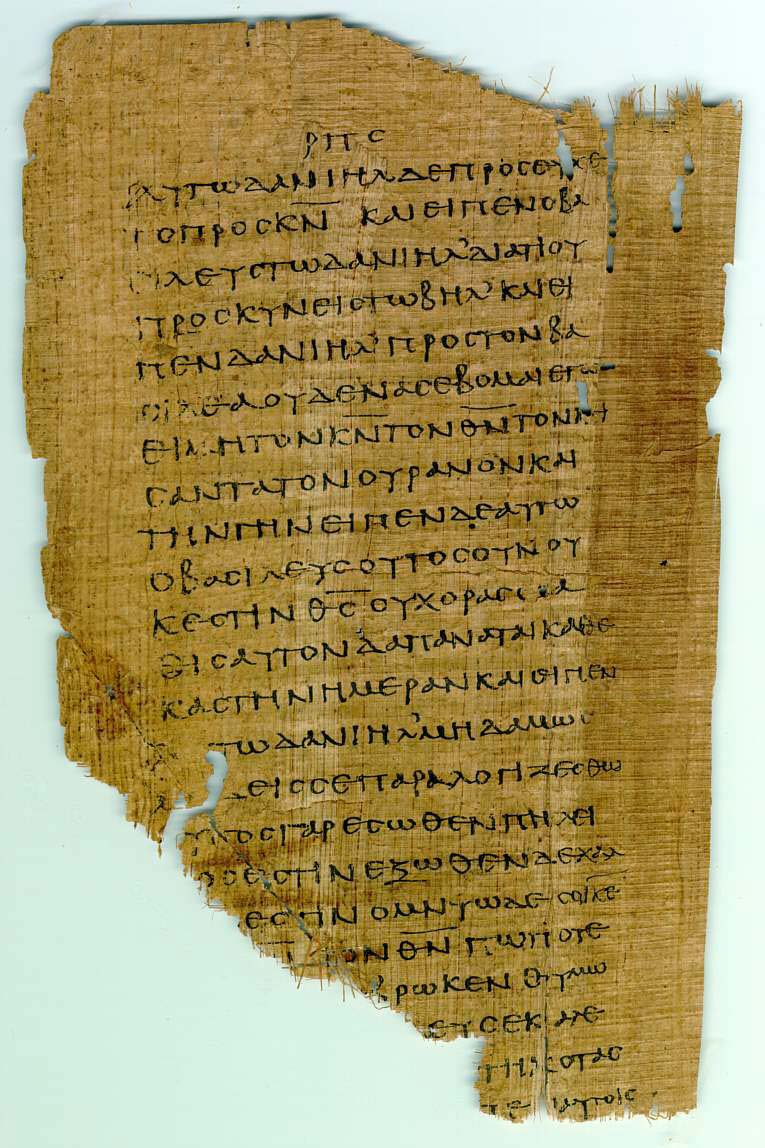 ΡΠϚ
ΑΥΤΩΔΑΝΙΗΛΔΕΠΡΟϹΕΥΧΕ
ΤΟΠΡΟϹΚΝ̅ ΚΑΙΕΙΠΕΝΟΒΑ
ϹΙΛΕΥϹΤΩΔΑΝΙΗΛ’ΔΙΑΤΙΟΥ
ΠΡΟϹΚΥΝΕΙϹΤΩΒΗΛ’ΚΑΙΕΙ
ΠΕΝΔΑΝΙΗΛ’ΠΡΟϹΤΟΝΒΑ
ϹΙΛΕΑΟΥΔΕΝΑϹΕΒΟΜΑΙΕΓΩ
ΕΙΜΗΤΟΝΚ̅Ν̅ΤΟΝΘ̅Ν̅ΤΟΝΚΤΙ
ϹΑΝΤΑΤΟΝΟΥΡΑΝΟΝΚΑΙ
ΤΗΝΓΗΝΕΙΠΕΝΔΕΑΥΤΩ
ΟΒΑϹΙΛΕΥϹΟΥΤΟϹΟΥΝΟΥ
ΚΕϹΤΙΝΘ̅Ϲ̅ΟΥΧΟΡΑϹ
ΘΙϹΑΥΤΟΝΔΑΠΑΝΑΤΑΙΚΑΘΕ
ΚΑϹΤΗΝΗΜΕΡΑΝΚΑΙΕΙΠΕΝ
ΤΩΔΑΝΙΗΛ’ΜΗΔΑΜΩϹ
ΕΙϹϹΕΠΑΡΑΛΟΓΙΖΕϹΘΩ
ΥΤΟϹΓΑΡΕϹΩΘΕΝΠΗΛΕΙ
ΟϹΕϹΤΙΝΕΞΩΘΕΝΔΕΧΑΛ
ΕϹΤΙΝΟΜΝΥΩΔΕϹΟΙΚΕ
ΤΟΝΘ̅Ν̅ΠΩΠΟΤΕ
ΡΩΚΕΝΘΥΜΩ
ΕΥϹΕΚΑΛΕ
ΤΗΚΟΤΑϹ
ΑΥΤΟΙϹ